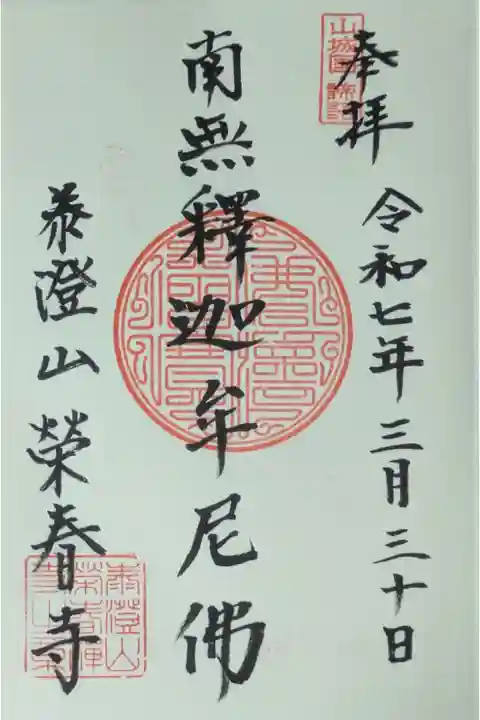 奉拝
令和七年三月三十日
南無釋迦牟尼佛
泰澄山榮春寺